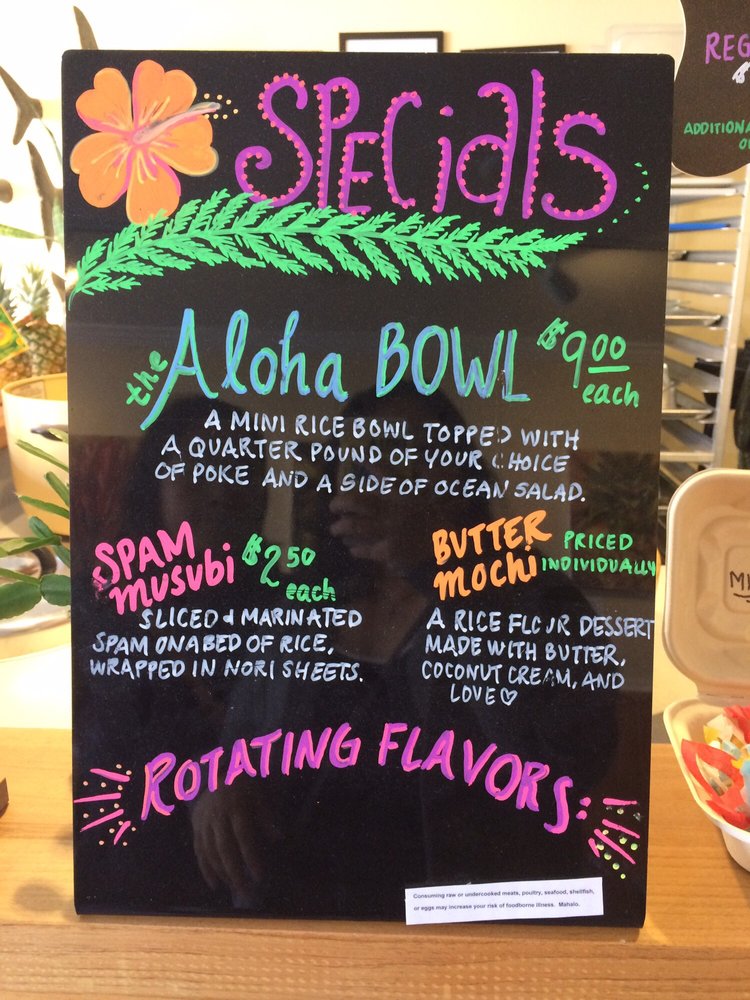 SPECIALS
the Aloha BOWL $9.00 each
A MINI RICE BOWL TOPPED WITH
A QUARTER POUND OF YOUR CHOICE
OF POKE AND A SIDE OF OCEAN SALAD.
SPAM musubi $2.50 each
SLICED & MARINATED
SPAM ON A BED OF RICE,
WRAPPED IN NORI SHEETS.
BUTTER mochi PRICED INDIVIDUALLY
A RICE FLOUR DESSERT
MADE WITH BUTTER,
COCONUT CREAM, AND
LOVE♡
ROTATING FLAVORS:
Consuming raw or undercooked meats, poultry, seafood, shellfish,
or eggs may increase your risk of foodborne illness. Mahalo.
REG
ADDITIONA